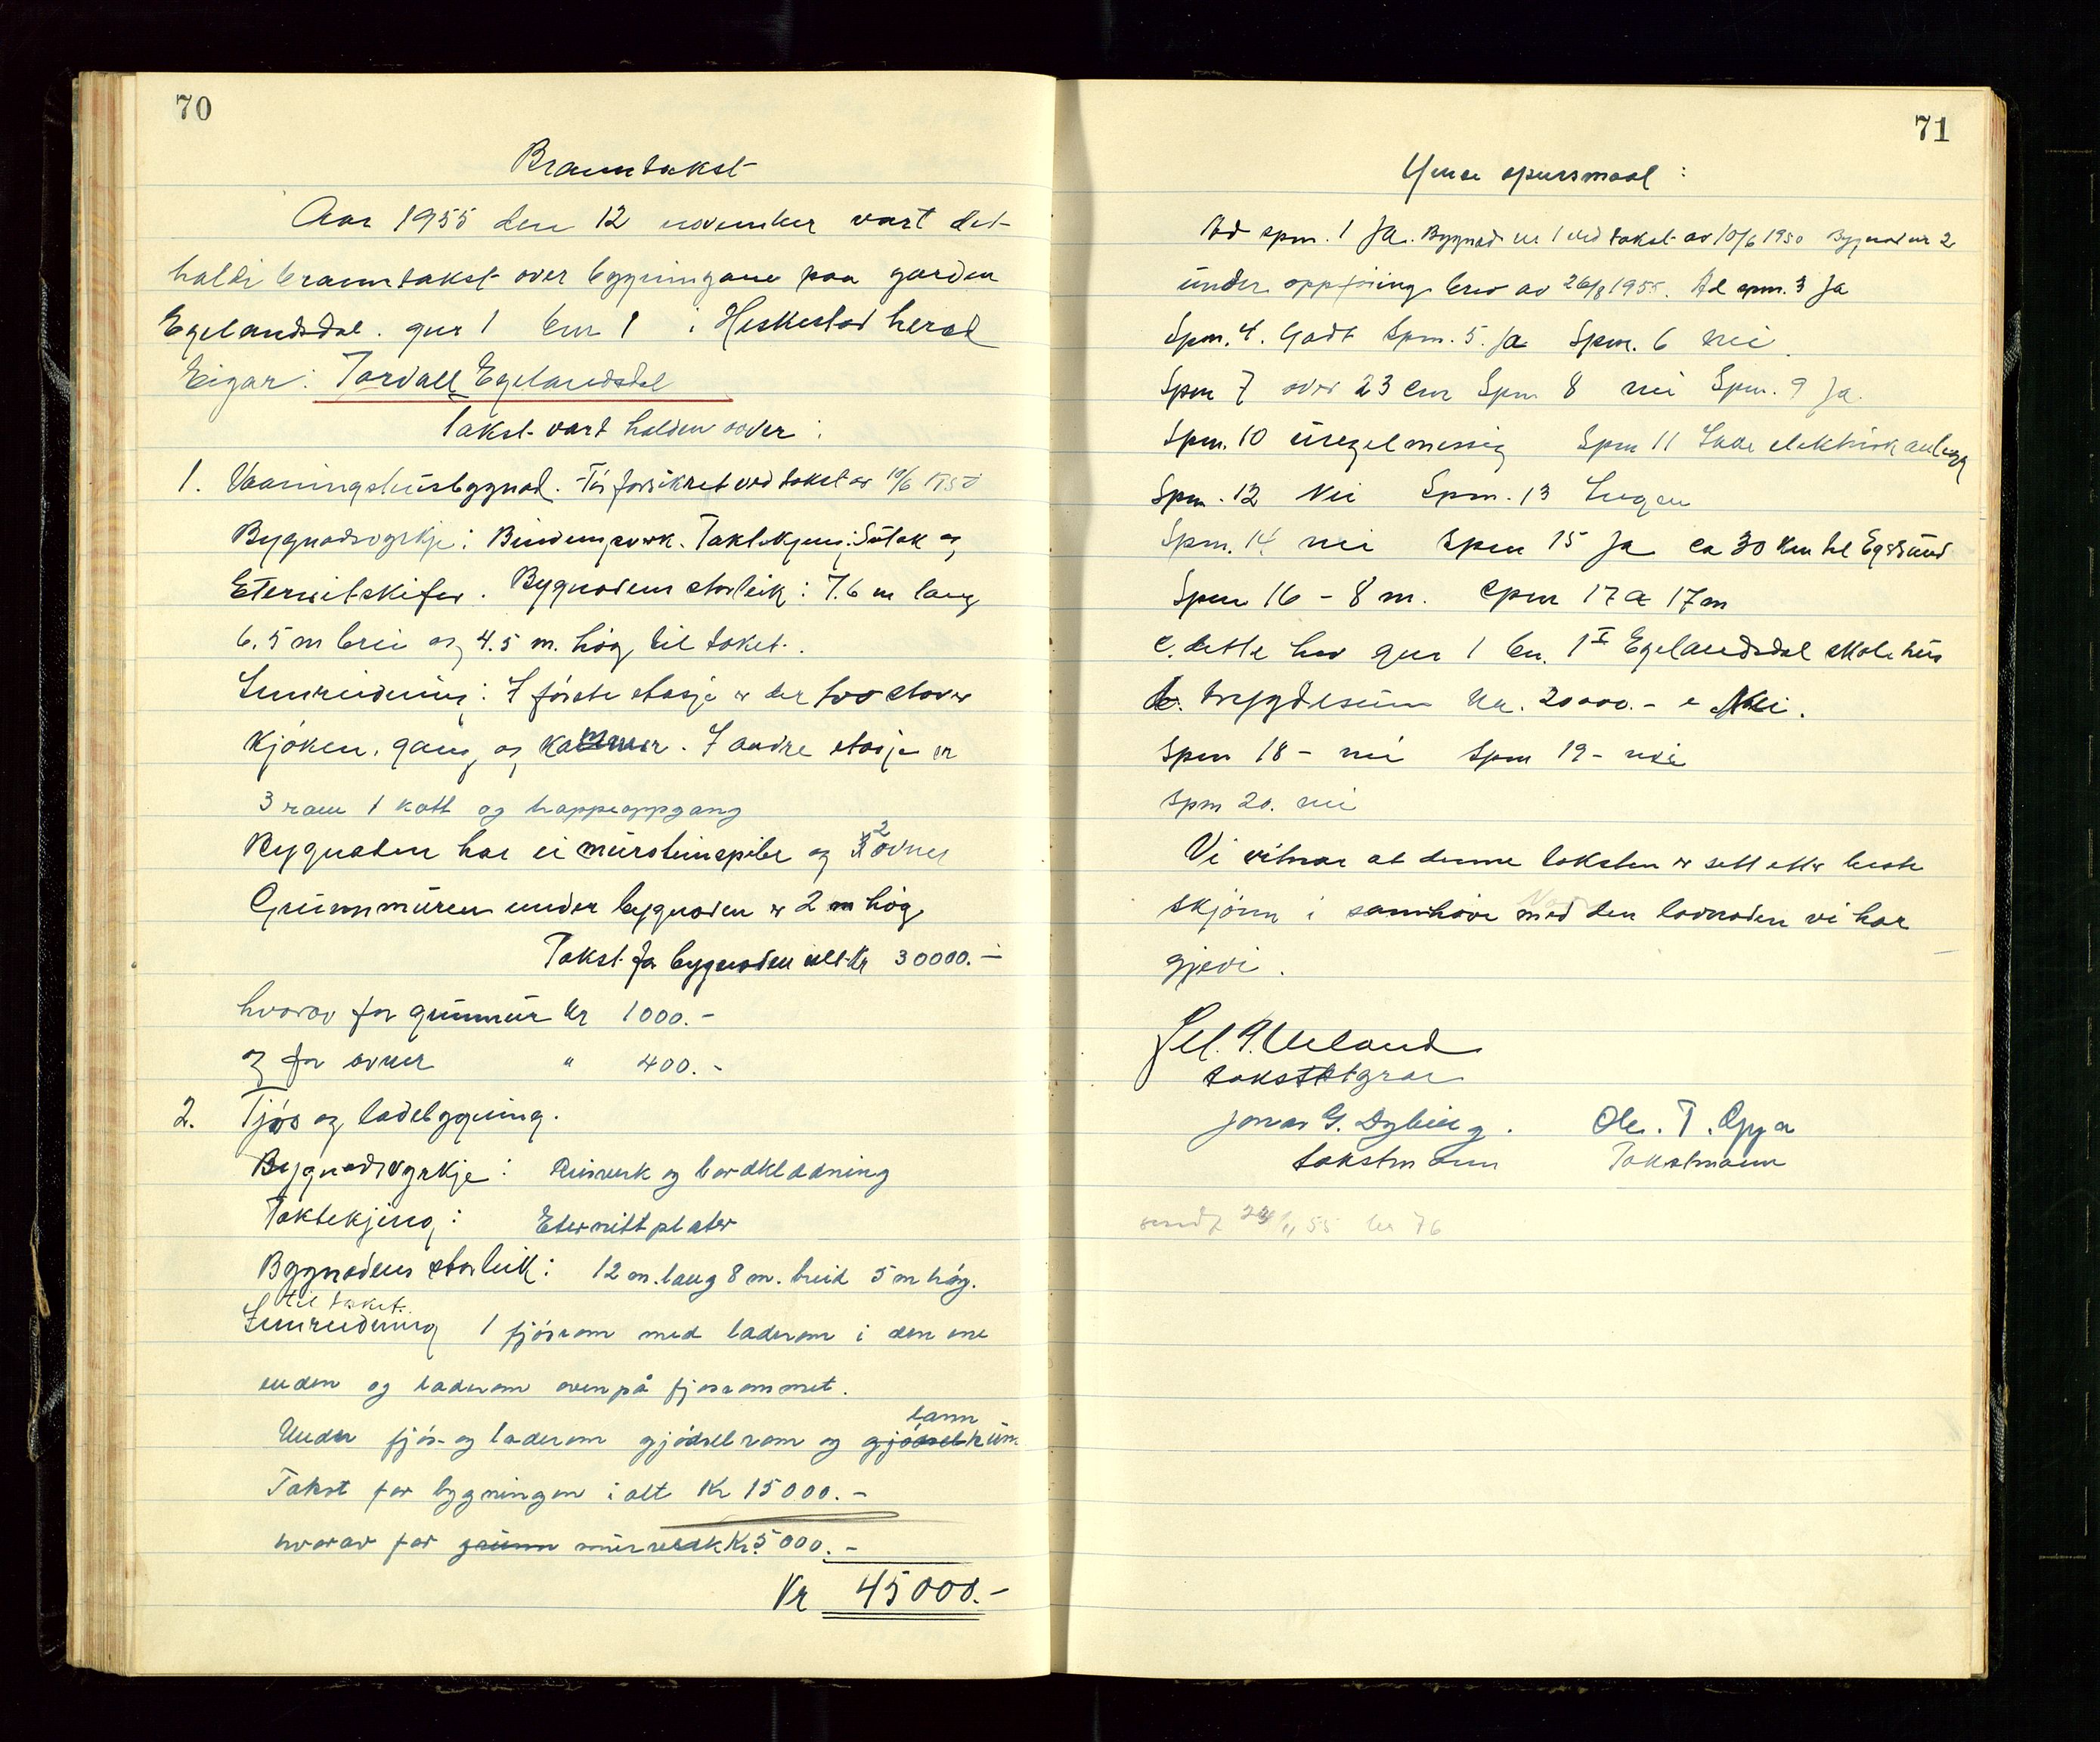 70
Branntakst
Aar 1955 den 12 november vart det
haldi branntakst over bygningane paa garden
Egelandsdal. gnr 1 bnr 1 i Heskestad herad
Eigar: Torvall Egelandsdal
Takst vart halden over:
1. Vaaningshusbygnad. Før forsikret ved takst av 10/6 1950
Bygnadsvyrkje: Bindingsverk. Taktekjing: Sutak og
Eternitskifer. Bygnadens storleik: 7.6 m lang
6.5 m brei og 4.5 m. høg til taket.
Innreidning: I første etasje er der tvo stover
kjøken, gang og kammer. I andre etasje er
3 rom 1 kott og trappeoppgang
Bygnaden har ei mursteinspibe og 2 ovner
Grunnmuren under bygnaden er 2 m høg
Takst for bygnaden ialt Kr 30000.-
hvorav for grunmur kr 1000.-
og for ovner " 400.-
2. Fjøs og ladebygning.
Bygnadsvyrkje: Reisverk og bordkledning
Taktekjing: Eternittplater
Bygnadens storleik: 12 m. lang 8 m. breid 5 m høg.
til taket.
Innreidning 1 fjøsrom med laderom i den ene
enden og laderom ovenpå fjosrommet.
lann
Under fjøs- og laderom gjødselrom og gjødselkum
Takst for bygningen i alt Kr 15000.-
hvorav for grunn murverk Kr. 5000.-
Kr 45000.-
71
Ymse spursmaal:
Ad spm. 1 Ja. Bygnad nr 1 ved takst av 10/6 1950 Bygnad nr 2
under oppføring brev av 26/8 1955. Ad spm. 3 Ja
Spm. 4. Godt Spm. 5. Ja Spm. 6 nei
Spm 7 over 23 cm Spm 8 nei Spm. 9 Ja.
Spm. 10 uregelmessig Spm 11 Ikke elektrisk anlegg
Spm. 12 Nei Spm. 13 Ingen
Spm. 14 nei Spm 15 Ja ca 30 km til Egersund
Spm 16 - 8 m. Spm 17 a 17 m
c. dette hev gnr 1 bn. 1 I Egelandsdal skolehus
b. trygdesum Kr. 20000.- e Nei.
Spm 18 - nei Spm 19 - nei
Spm 20. nei
Vi vitnar at denne taksten er sett etter beste
skjønn i samhøve med den lovnaden vi har
gjevi.
Sel. P. Ueland
takstitgrar
Jonas G. Dybing. Ole. T. Gya
takstmann Takstmann
sendt 24/11 55 kr 76